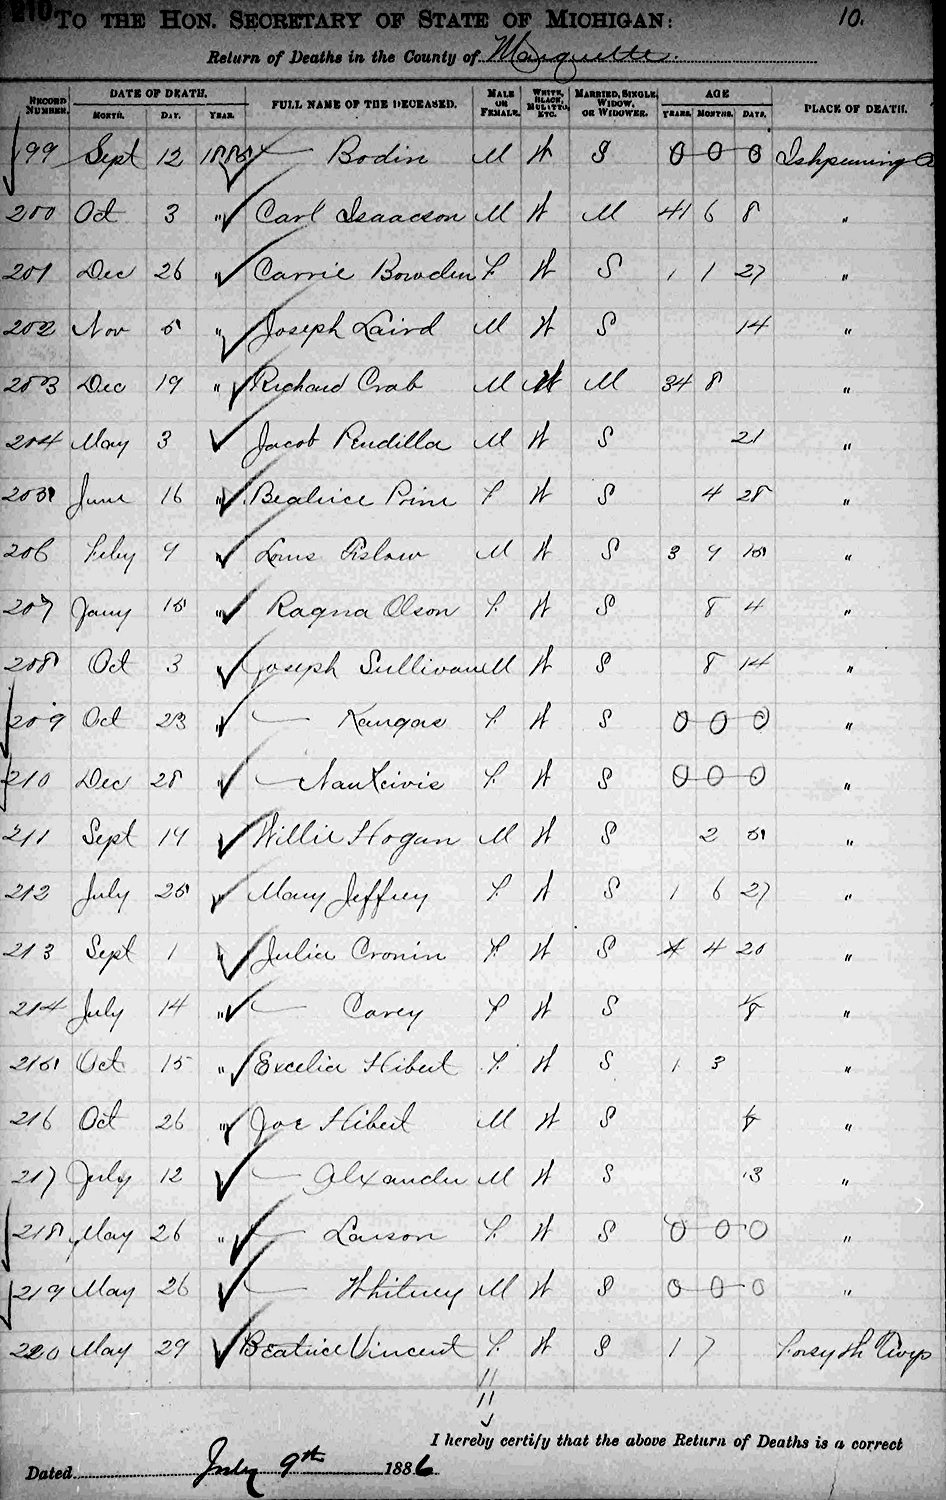 210 TO THE HON. SECRETARY OF STATE OF MICHIGAN: 10.
Return of Deaths in the County of Marquette.
RECORD NUMBER. DATE OF DEATH. MONTH. DAY. YEAR. FULL NAME OF THE DECEASED. MALE OR FEMALE. WHITE, BLACK, MULATTO, ETC. MARRIED, SINGLE, WIDOW, OR WIDOWER. AGE YEARS, MONTHS, DAYS. PLACE OF DEATH.
199 Sept 12 1885 — Bodin M W S 0 0 0 Ishpeming
200 Oct 3 " Carl Isaacson M W M 41 6 8 "
201 Dec 26 " Carrie Bowden F. W S 1 1 27 "
202 Nov 5 " Joseph Laird M W S 14 "
203 Dec 19 " Richard Crab M W M 34 8 "
204 May 3 " Jacob M W S 21 "
205 June 16 " Beatrice Prim F W S 4 28 "
206 Feby 9 " Louis M W S 3 9 15 "
207 Jany 15 " Ragna Olson F. W S 8 4 "
208 Oct 3 " Joseph Sullivan M W S 8 14 "
209 Oct 23 " — Kangas F. W S 0 0 0 "
210 Dec 28 " — F. W S 0 0 0 "
211 Sept 14 " Willie Hogan M W S 2 5 "
212 July 25 " Mary Jeffrey F. W S 1 6 27 "
213 Sept 1 " Julia Cronin F. W S 4 4 20 "
214 July 14 " — Carey F W S "
215 Oct 15 " Excelia Hibert F. W S 1 3 "
216 Oct 26 " Joe Hibert M W S "
217 July 12 " — Alexander M W S 13 "
218 May 26 " — Larson F. W S 0 0 0 "
219 May 26 " — Whitney M W S 0 0 0 "
220 May 29 " Beatrice Vincent F. W S 1 7 Forsyth Twp
"
"
I hereby certify that the above Return of Deaths is a correct
Dated July 9th 1886